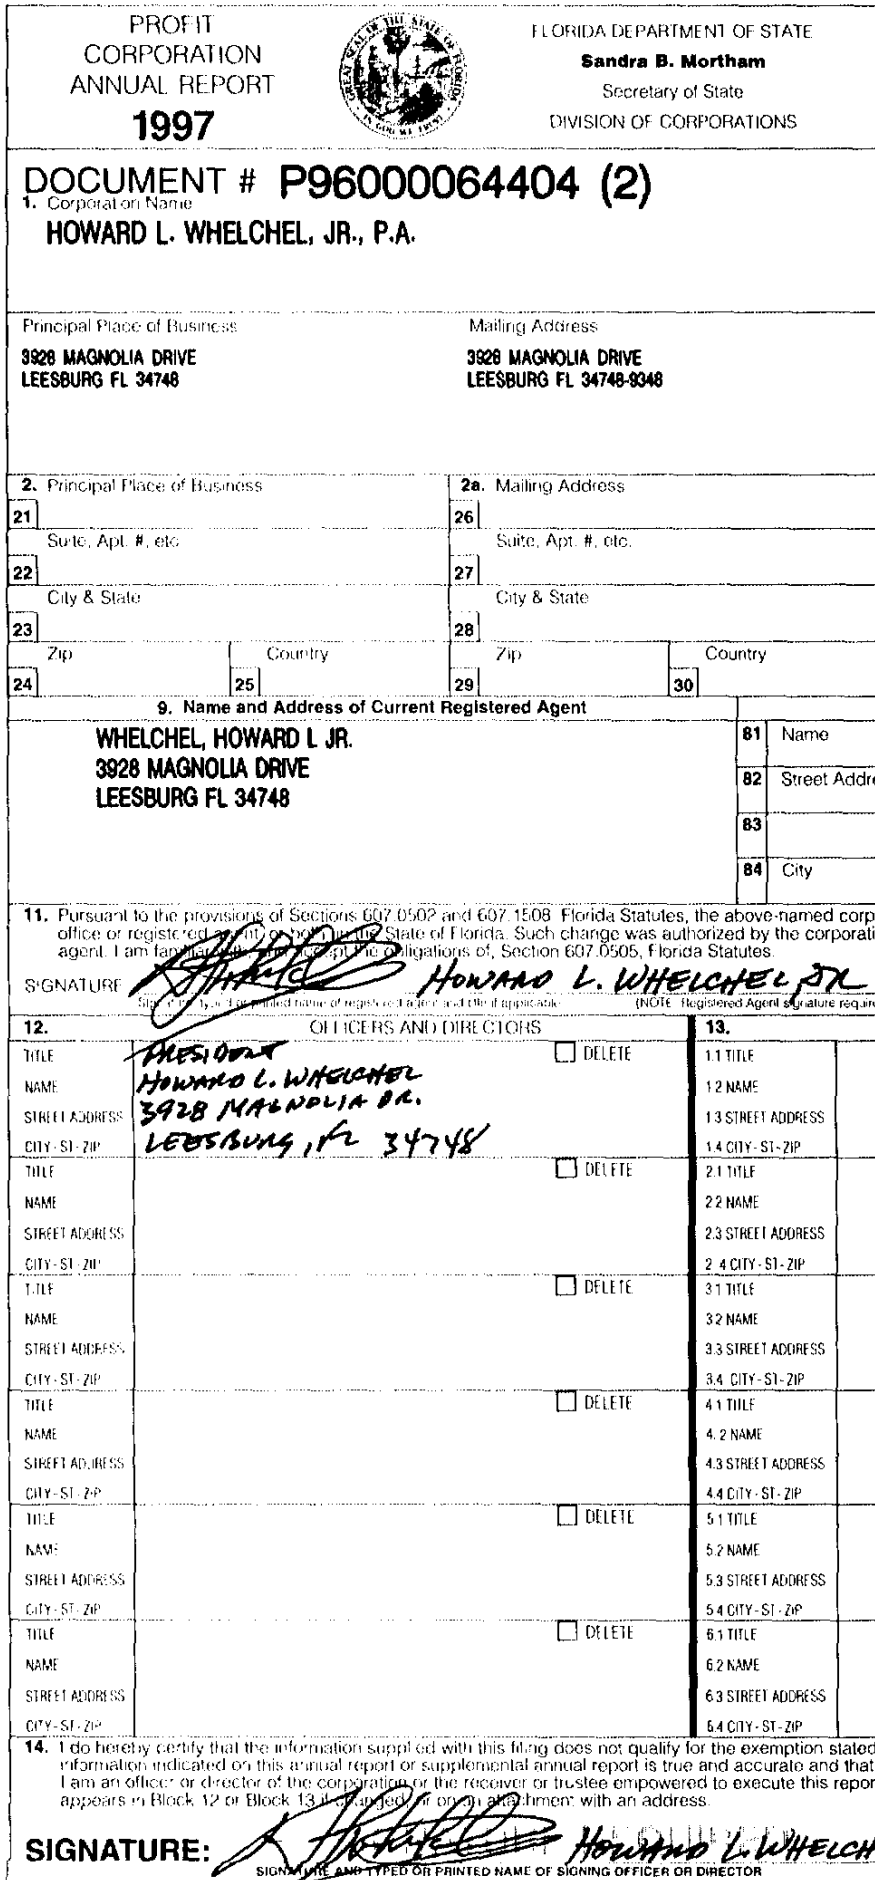 PROFIT
CORPORATION
ANNUAL REPORT
1997
GREAT SEAL OF THE STATE OF FLORIDA
IN GOD WE TRUST
FLORIDA DEPARTMENT OF STATE
Sandra B. Mortham
Secretary of State
DIVISION OF CORPORATIONS
DOCUMENT # P96000064404 (2)
1. Corporation Name
HOWARD L. WHELCHEL, JR., P.A.
Principal Place of Business
3928 MAGNOLIA DRIVE
LEESBURG FL 34748
Mailing Address
3928 MAGNOLIA DRIVE
LEESBURG FL 34748-9348
2. Principal Place of Business
2a. Mailing Address
21
26
Suite, Apt. #, etc.
Suite, Apt. #, etc.
22
27
City & State
City & State
23
28
Zip
Country
Zip
Country
24
25
29
30
9. Name and Address of Current Registered Agent
WHELCHEL, HOWARD L JR.
3928 MAGNOLIA DRIVE
LEESBURG FL 34748
81 Name
82 Street Addre
83
84 City
11. Pursuant to the provisions of Sections 607.0502 and 607.1508 Florida Statutes, the above-named corp
office or registered agent, or both, in the State of Florida. Such change was authorized by the corporati
agent. I am familiar with, and accept the obligations of, Section 607.0505, Florida Statutes.
SIGNATURE HOWARD L. WHELCHEL, JR
Signature, typed or printed name of registered agent and title if applicable (NOTE Registered Agent signature require
12. OFFICERS AND DIRECTORS
13.
TITLE PRESIDENT DELETE
NAME HOWARD L. WHELCHEL
STREET ADDRESS 3928 MAGNOLIA DR.
CITY-ST-ZIP LEESBURG, FL 34748
1.1 TITLE
1.2 NAME
1.3 STREET ADDRESS
1.4 CITY-ST-ZIP
TITLE DELETE
NAME
STREET ADDRESS
CITY-ST-ZIP
2.1 TITLE
2.2 NAME
2.3 STREET ADDRESS
2.4 CITY-ST-ZIP
TITLE DELETE
NAME
STREET ADDRESS
CITY-ST-ZIP
3.1 TITLE
3.2 NAME
3.3 STREET ADDRESS
3.4 CITY-ST-ZIP
TITLE DELETE
NAME
STREET ADDRESS
CITY-ST-ZIP
4.1 TITLE
4.2 NAME
4.3 STREET ADDRESS
4.4 CITY-ST-ZIP
TITLE DELETE
NAME
STREET ADDRESS
CITY-ST-ZIP
5.1 TITLE
5.2 NAME
5.3 STREET ADDRESS
5.4 CITY-ST-ZIP
TITLE DELETE
NAME
STREET ADDRESS
CITY-ST-ZIP
6.1 TITLE
6.2 NAME
6.3 STREET ADDRESS
6.4 CITY-ST-ZIP
14. I do hereby certify that the information supplied with this filing does not qualify for the exemption stated
information indicated on this annual report or supplemental annual report is true and accurate and that
I am an officer or director of the corporation or the receiver or trustee empowered to execute this repor
appears in Block 12 or Block 13 if changed, or on an attachment with an address.
SIGNATURE: HOWARD L. WHELCH
SIGNATURE AND TYPED OR PRINTED NAME OF SIGNING OFFICER OR DIRECTOR